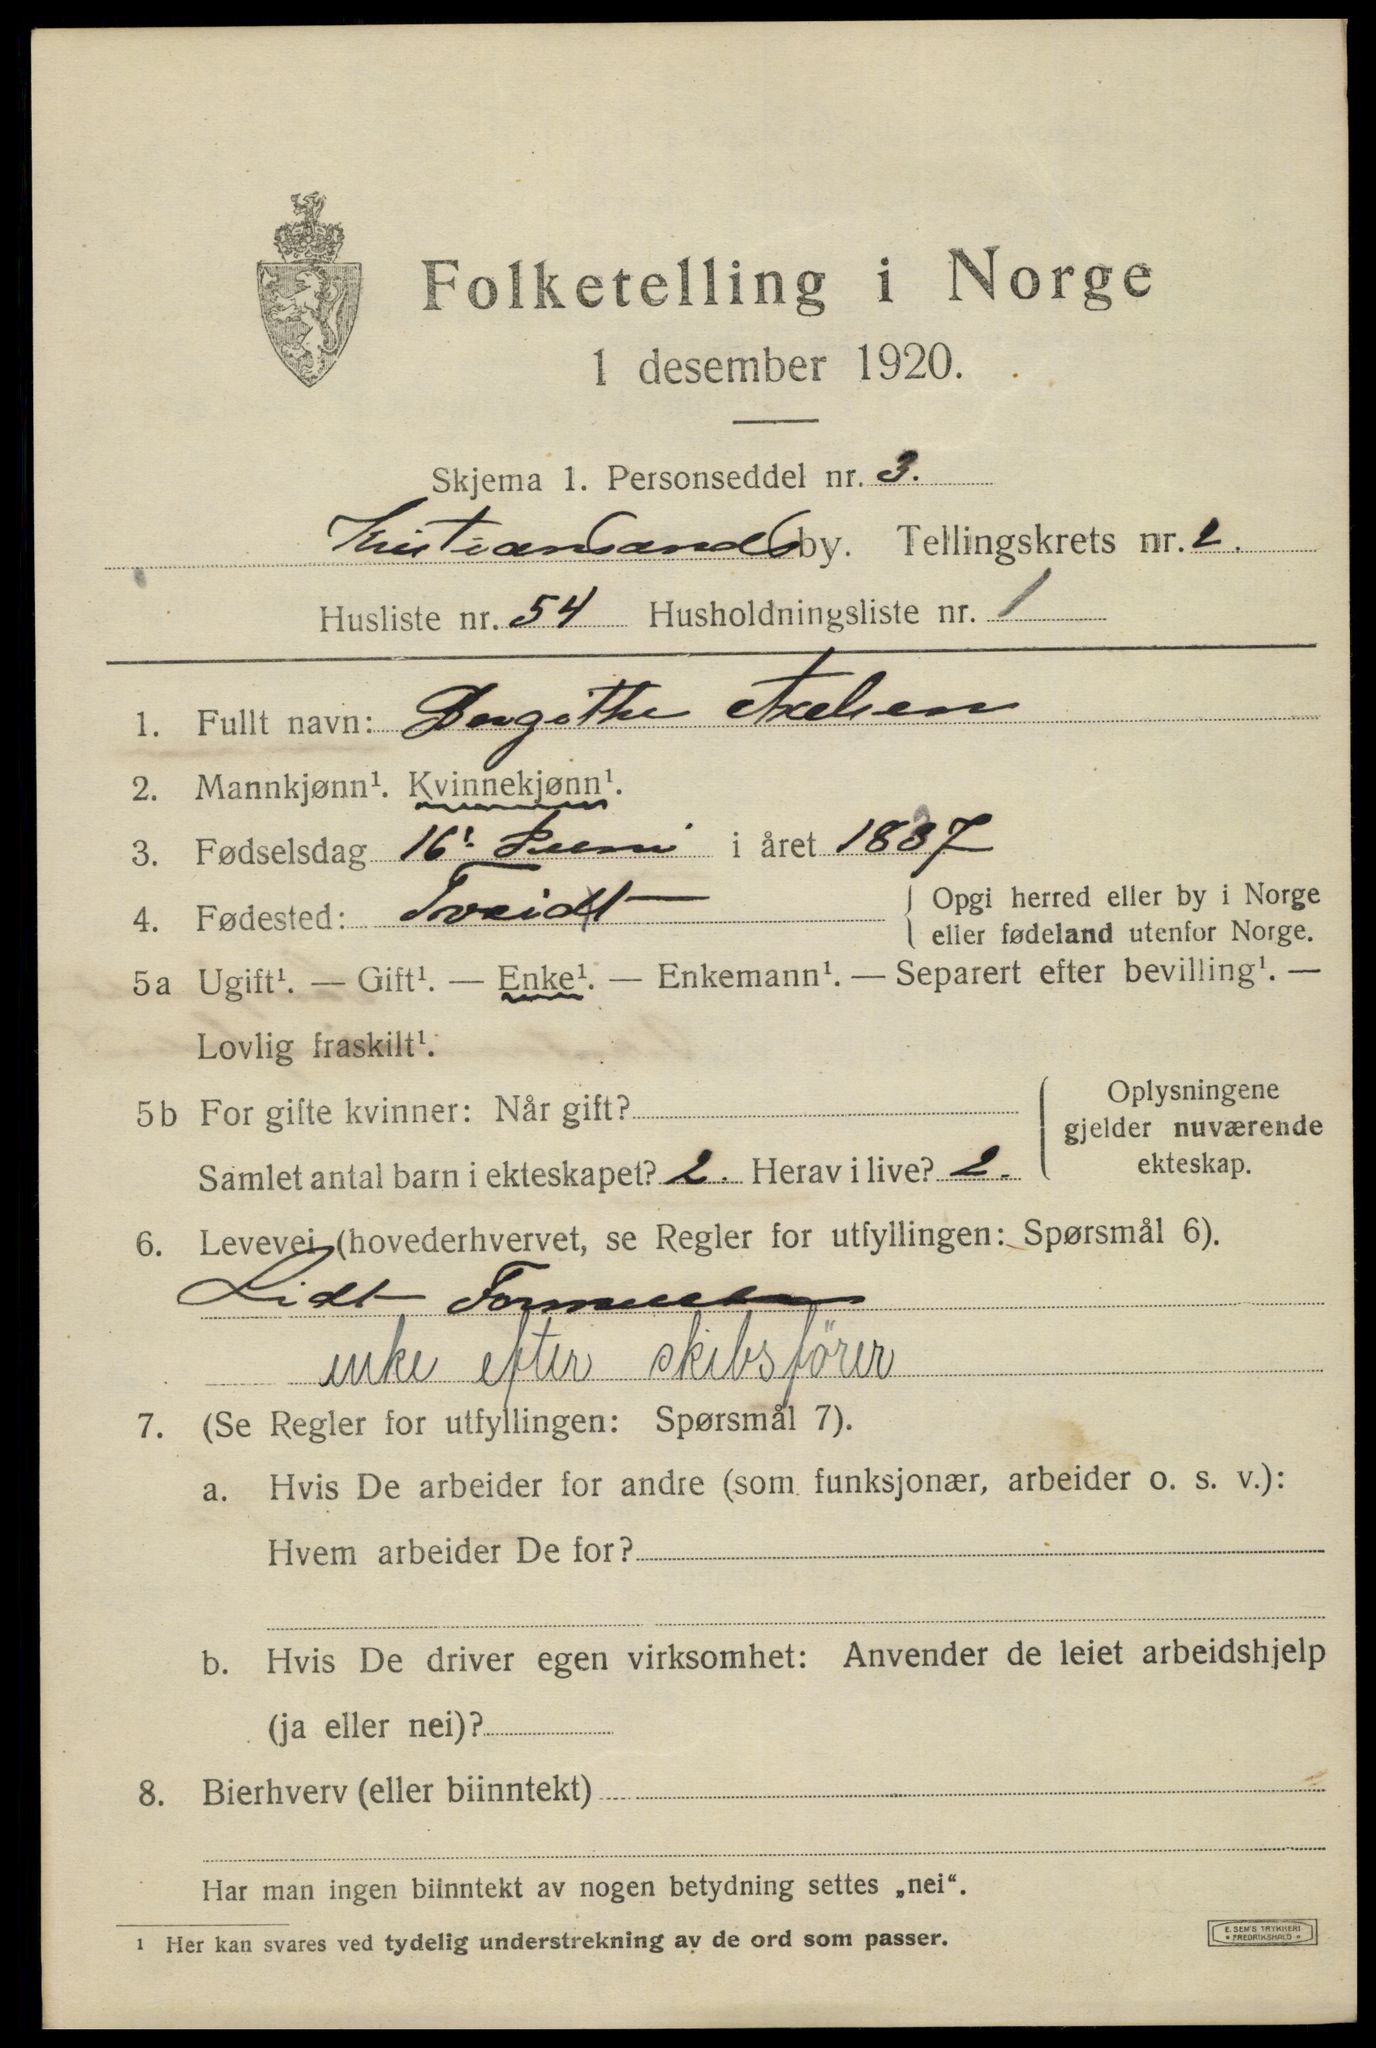 Folketelling i Norge
1 desember 1920.
Skjema 1. Personseddel nr. 3.
Kristiansands by. Tellingskrets nr. 2.
Husliste nr. 54 Husholdningsliste nr. 1
1. Fullt navn: Birgithe Axelsen
2. Mannkjønn¹. Kvinnekjønn¹.
3. Fødselsdag 16' Juni i året 1837
4. Fødested: Tveidt
Opgi herred eller by i Norge
eller fødeland utenfor Norge.
5a Ugift¹. — Gift¹. — Enke¹. — Enkemann¹. — Separert efter bevilling¹. —
Lovlig fraskilt¹.
5b For gifte kvinner: Når gift?
Samlet antal barn i ekteskapet? 2. Herav i live? 2.
Oplysningene
gjelder nuværende
ekteskap.
6. Levevei (hovederhvervet, se Regler for utfyllingen: Spørsmål 6).
Lidt Formue
enke efter skibsförer
7. (Se Regler for utfyllingen: Spørsmål 7).
a. Hvis De arbeider for andre (som funksjonær, arbeider o. s. v.):
Hvem arbeider De for?
b. Hvis De driver egen virksomhet: Anvender de leiet arbeidshjelp
(ja eller nei)?
8. Bierhverv (eller biinntekt)
Har man ingen biinntekt av nogen betydning settes „nei“.
¹ Her kan svares ved tydelig understrekning av de ord som passer.
E. SEM'S TRYKKERI
• FREDRIKSHALD •